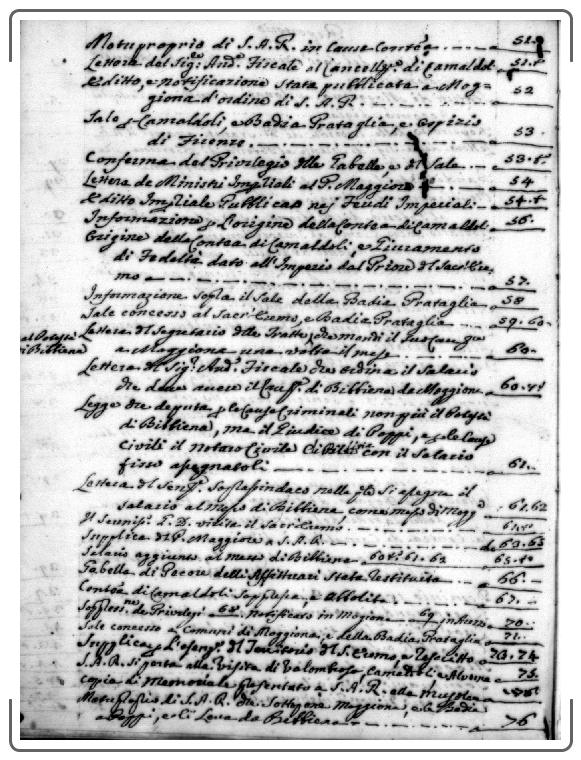 Motuproprio di S. A. R. in Causa Contea 51.
Lettera del Sig.e Aud.e Fiscale al Cancell.e di Camaldoli 51.t
Editto, e Notificazione stata pubblicata a Mog=
giona d'ordine di S. A. R. 52
Sale p Camaldoli, e Badia Prataglia, e Ospizio
di Firenze 53.
Conferma del Privilegio delle Tabelle, e del Sale 53.t
Lettera de Ministri Imp.li al P. Maggiore 54
Editto Imp.iale Pubblicato nei Feudi Imperiali 54.t
Informazione p L'origine della Contea di Camaldoli 56.
Origine della Contea di Camaldoli, e Giuramento
di Fedeltà dato all'Imperio dal Priore del Sacr'Ere=
mo 57.
Informazione sopra il Sale della Badia Prataglia 58
Sale concesso al Sacr'Eremo, e Badia Prataglia 59. 60.
al Potestà
di Bibbiena
Lettera del Segretario delle Tratte, che mandi il
a Moggiona una volta il mese 60.
Lettera del Sig.e Aud.e Fiscale che ordina il Salario
che deve avere il di Bibbiena da Moggiona 60.t
Legge che deputa p le Cause Criminali non più il Potestà
di Bibbiena, ma il Giudice di Poppi, e p le Cause
Civili il Notaro Civile di Bibbiena con il Salario
fisso assegnatoli 61.
Lettera del Soprassindaco nella q.le si assegna il
Salario al messo di Bibbiena come messo di Mogg.a 61.62
Il G. D. visita il Sacr'Eremo
Supplica del P. Maggiore a S. A. R. 63
Salario aggiunto al messo di Bibbiena 60.t 61. 62 65.t
Tabella di Pecore delli Affittuari stata restituita 66
Contea di Camaldoli Soppressa, e Abolita 67.
Soppress.ne de Privilegi 68. Notificato in Mogiona 69 70.
Sale concesso a Comuni di Moggiona, e della Badia Prataglia 71.
Supplica p L'esenz.e del Territorio del S. Eremo, e Rescritto 73.74
S. A. R. si porta alla Visita di Valombrosa, Camaldoli e Alvernia 75.
Copia di Memoriale presentato a S. A. R. 
Motuproprio di S. A. R. che Sottopone Moggiona, e la Badia
a Poppi, e li Leva da Bibbiena 76